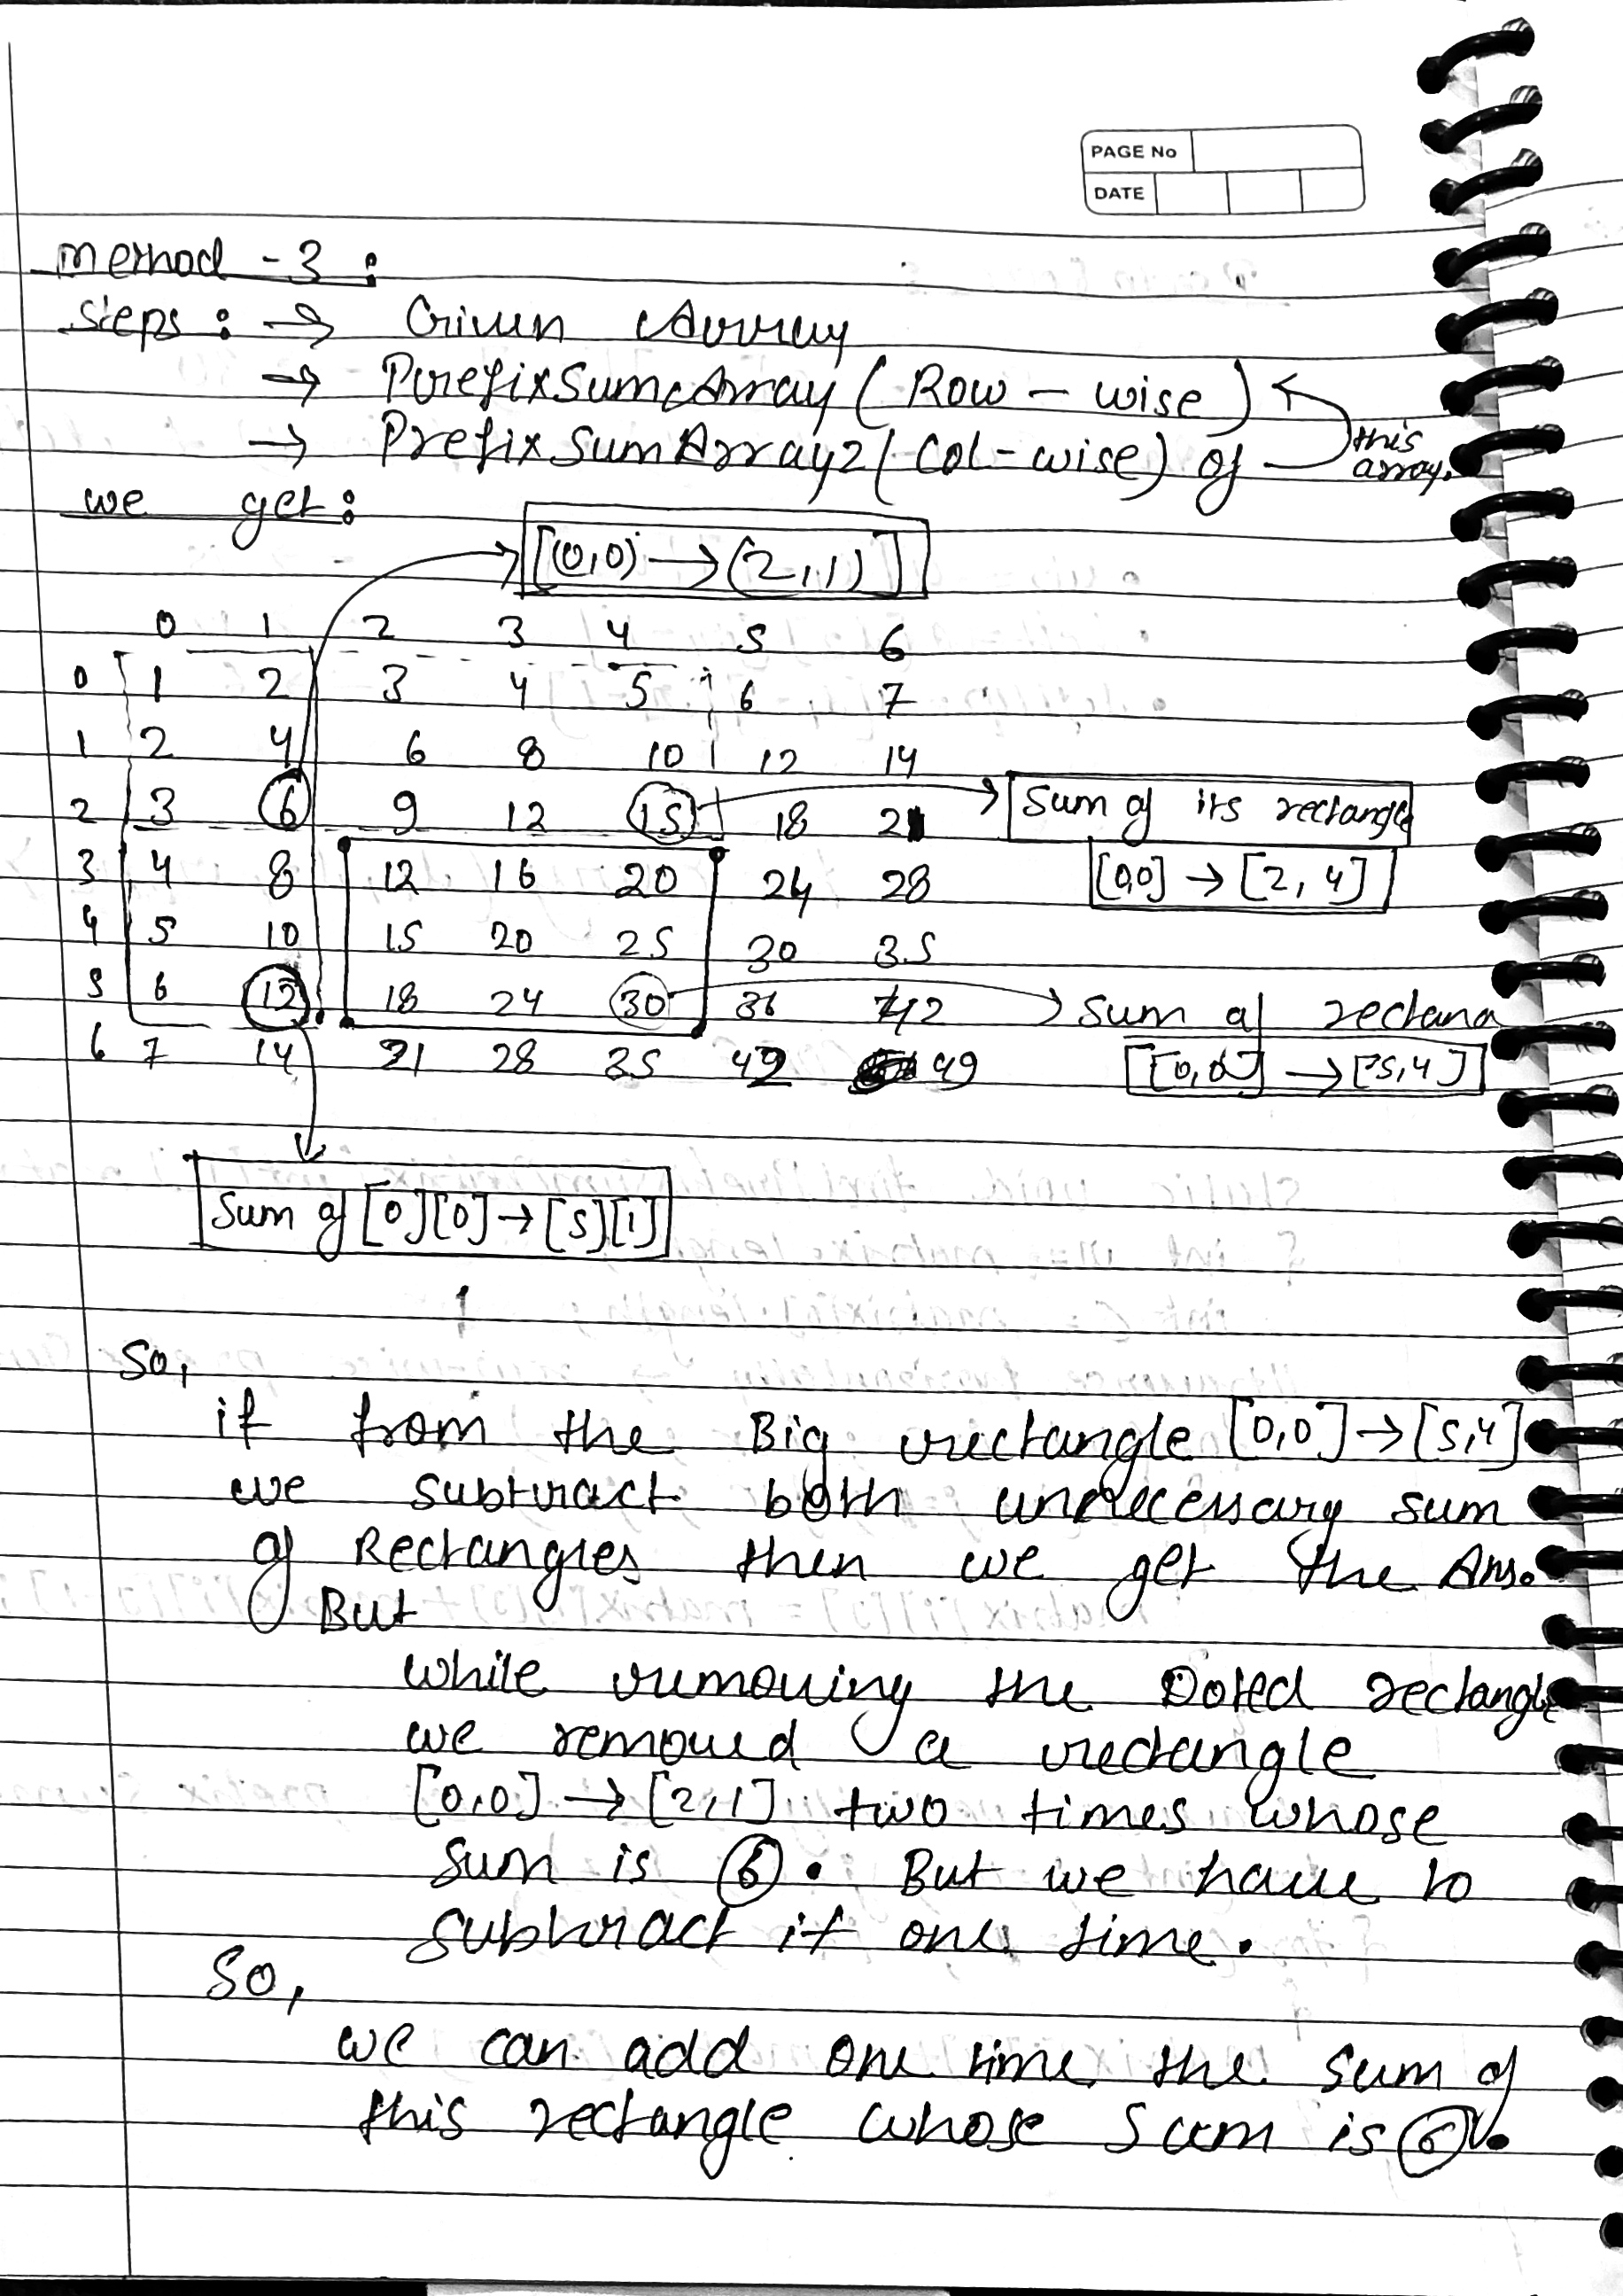 PAGE No
DATE
method - 3 :
steps : → Given Array
→ PrefixSumArray ( Row - wise )
→ PrefixSumArray2 ( Col - wise ) of this array.
we get :
[(0,0) → (2,1)]
0 1 2 3 4 5 6
0 1 2 3 4 5 6 7
1 2 4 6 8 10 12 14
2 3 6 9 12 15 18 21 → Sum of its rectangle
[0,0] → [2, 4]
3 4 8 12 16 20 24 28
4 5 10 15 20 25 30 35
5 6 12 18 24 30 36 42 → Sum of rectang
[0,0] → [5,4]
6 7 14 21 28 35 42 49
Sum of [0][0] → [5][1]
So,
if from the Big rectangle [0,0] → [5,4]
we subtract both unnecessary sum
of Rectangles then we get the Ans.
But
while removing the Doted rectangle
we removed a rectangle
[0,0] → [2,1] two times whose
sum is 6 . But we have to
subtract it one time.
So,
we can add one time the sum of
this rectangle whose Sum is 6.